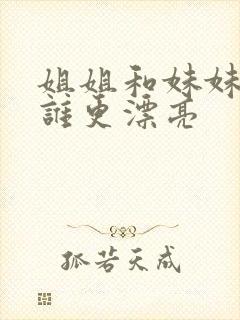 姐姐和妹妹
誰更漂亮
孤若天成